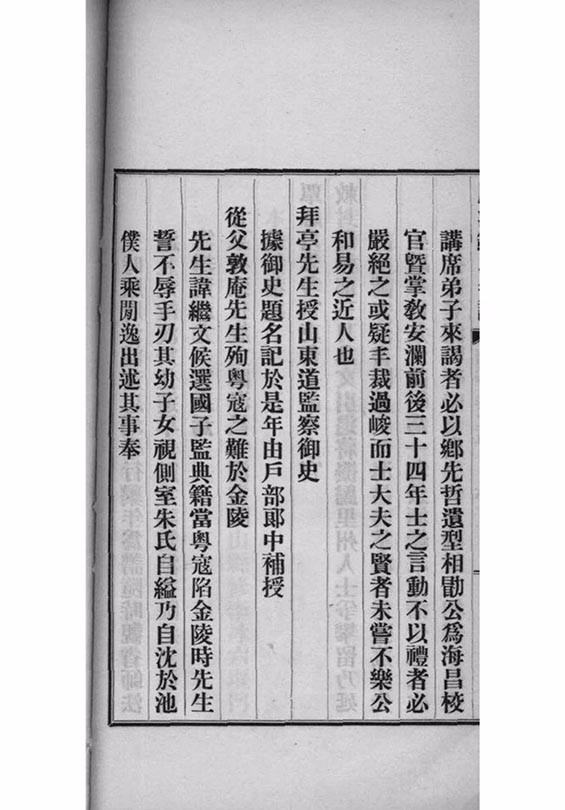 講席弟子來謁者必以鄉先哲遺型相勖公為海昌校
官暨掌教安瀾前後三十四年士之言動不以禮者必
嚴絕之或疑丰裁過峻而士大夫之賢者未嘗不樂公
和易之近人也
拜亭先生授山東道監察御史
據御史題名記於是年由戶部郎中補授
從父敦庵先生殉粵寇之難於金陵
先生諱繼文候選國子監典籍當粵寇陷金陵時先生
誓不辱手刃其幼子女視側室朱氏自縊乃自沈於池
僕人乘閒逸出述其事奉